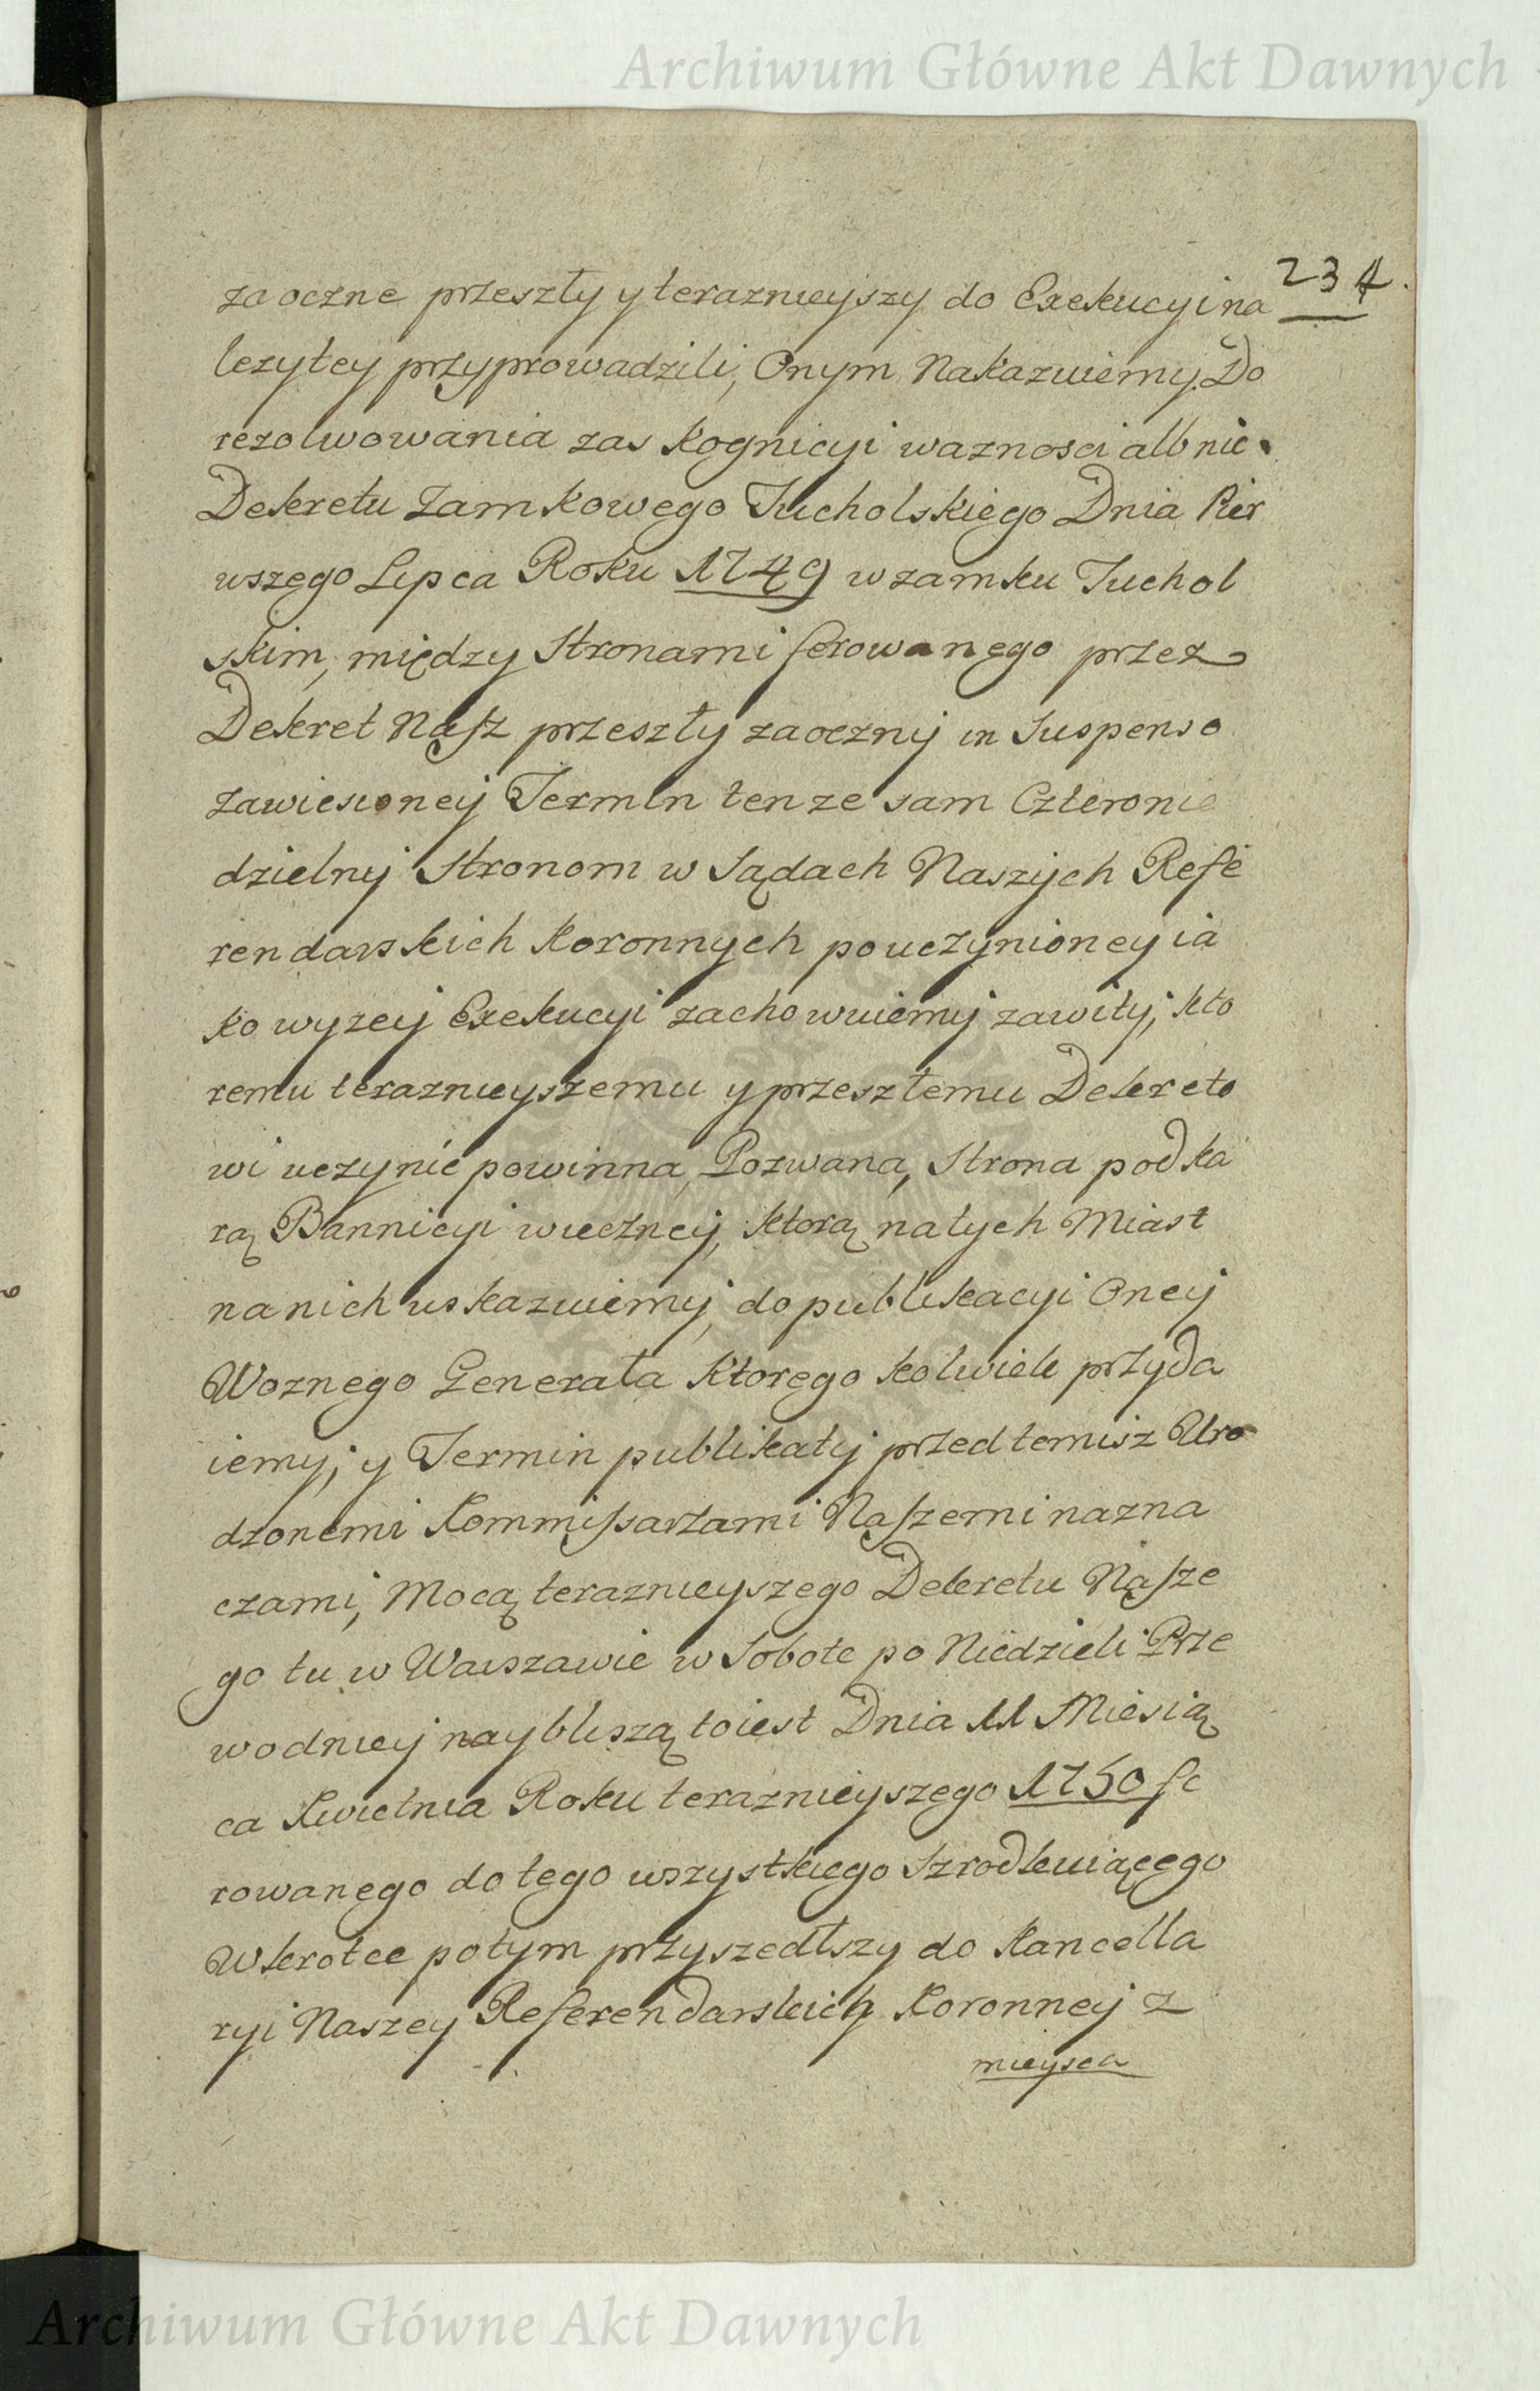 Archiwum Główne Akt Dawnych
234.
zaoczne przeszły y teraznieyszy do Exekucyi na
lezytey przyprowadzili, Onym Nakazuiemy. Do
rezolwowania zas Kognicyi waznosci alb nie
Dekretu Zamkowego Tucholskiego Dnia Pier
wszego Lipca Roku 1749 w zamku Tuchol
skim, między Stronami ferowanego przez
Dekret Nasz przeszły zaoczny in Suspenso
Zawiesioney Termin tenze sam Czteronie
dzielny Stronom w Sądach Naszych Refe
rendarskich Koronnych po uczynioney ia
ko wyzey Exekucyi zachowuiemy zawity, kto
remu teraznieyszemu y przeszłemu Dekreto
wi uczynić powinna Pozwana, Strona pod ka
rą Bannicyi wieczney, ktorą natych Miast
na nich wskazuiemy, do publikacyi Oney
Woznego Generała Ktorego kolwiek przyda
iemy, y Termin publikaty przed temisz Uro
dzonemi Kommissarzami Naszemi nazna
czami, Mocą teraznieyszego Dekretu Nasze
go tu w Warszawie w Sobote po Niedzieli Prze
wodniey naybliszą toiest Dnia 11 Miesią
ca Kwietnia Roku teraznieyszego 1750 fe
rowanego do tego wszystkiego Szrodkuiącego
Wkrotce potym przyszedłszy do Kancella
ryi Naszey Referendarskich Koronney z
mieysca
Archiwum Główne Akt Dawnych